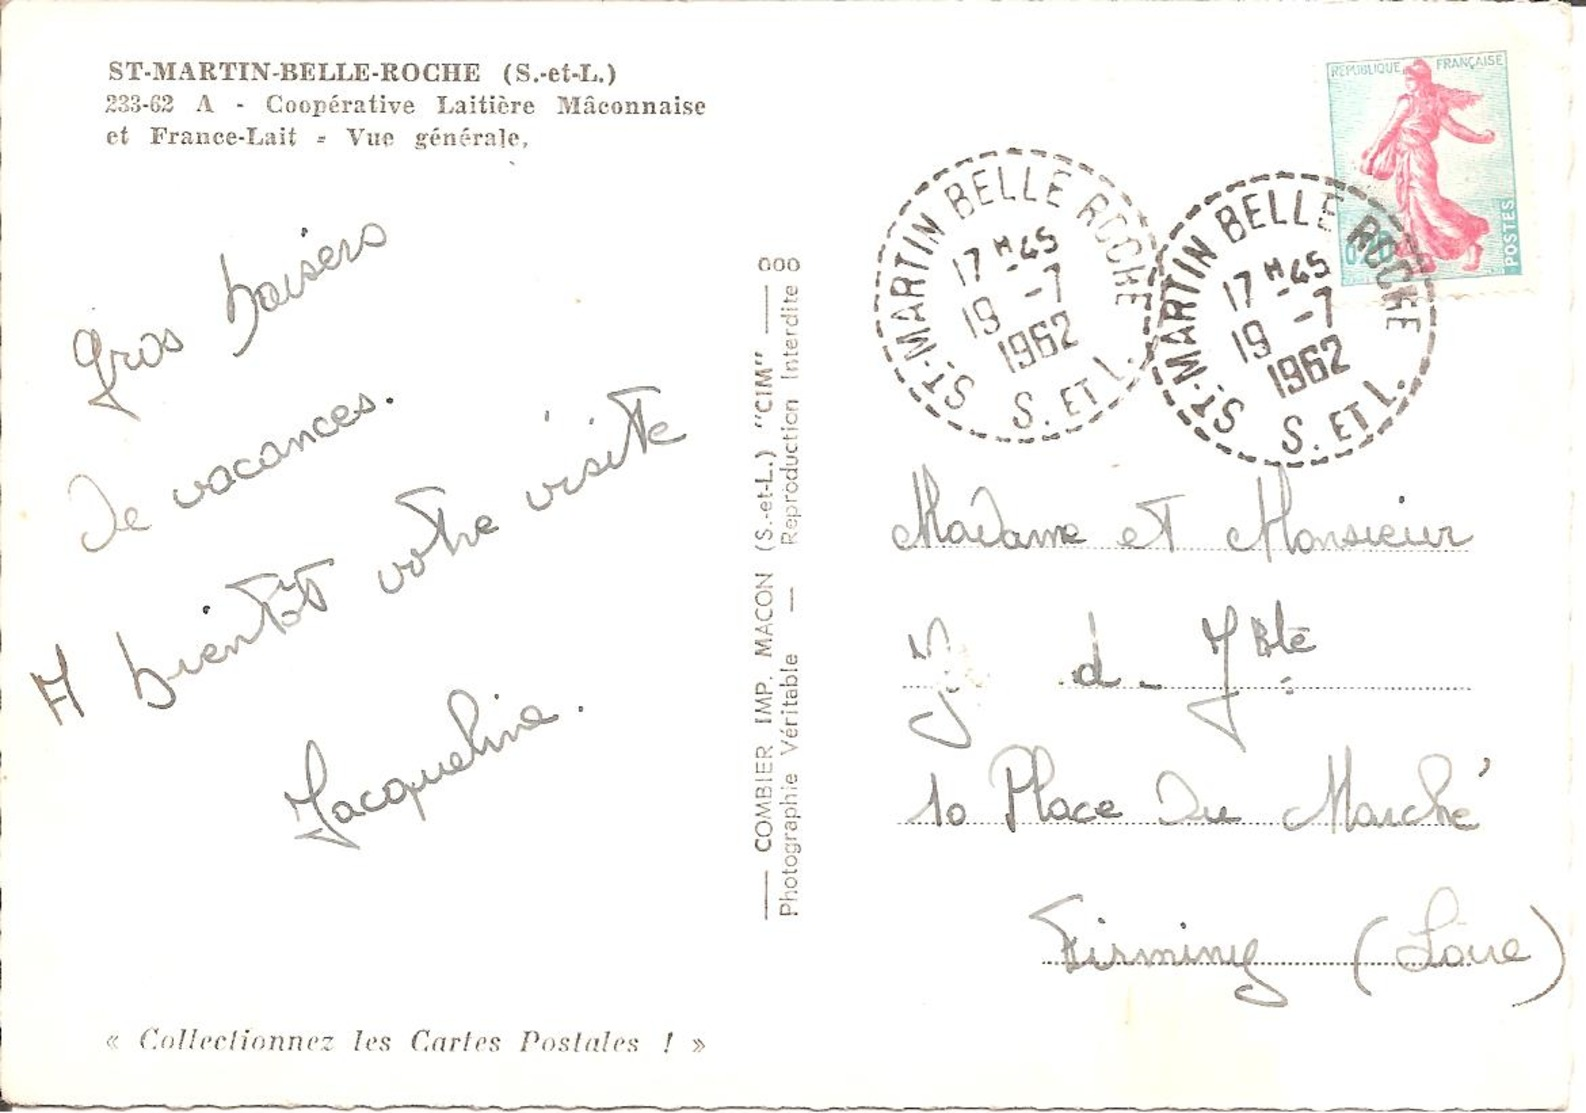 ST-MARTIN-BELLE-ROCHE (S.-et-L.)
233-62 A - Coopérative Laitière Mâconnaise
et France-Lait - Vue générale.
gros baisers
de vacances.
A bientôt votre visite
Jacqueline.
« Collectionnez les Cartes Postales ! »
COMBIER IMP. MACON (S.-et-L.) "CIM"
Photographie Véritable — Reproduction Interdite
REPUBLIQUE FRANÇAISE
POSTES
ST-MARTIN BELLE ROCHE
17 H 45
19 -7
1962
S. ET L.
ST-MARTIN BELLE ROCHE
17 H 45
19 -7
1962
S. ET L.
Madame et Monsieur
10 Place Du Marché
Firminy (Loire)